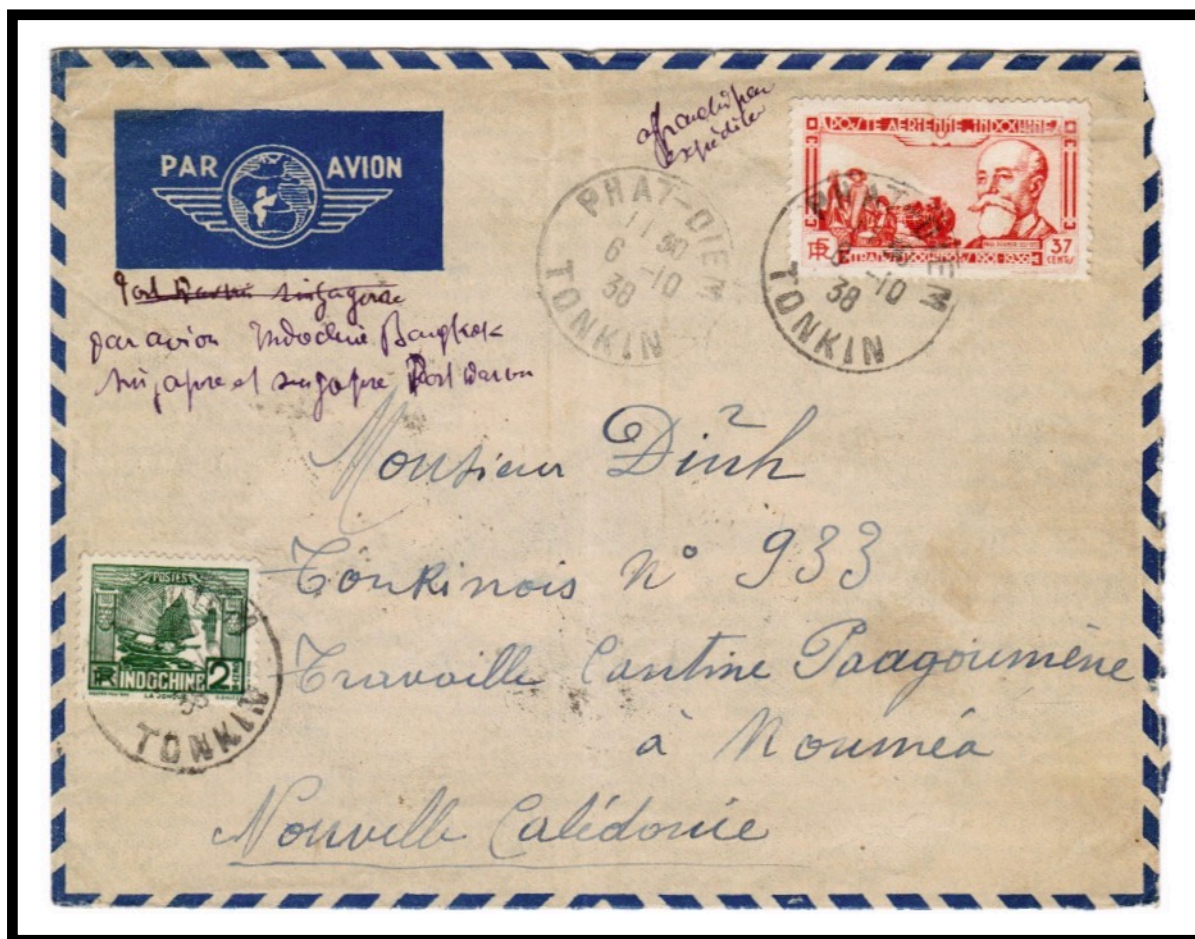 affranchi par
expéditeur
POSTE AERIENNE INDOCHINE
37
CENTS
RF
TRANSINDOCHINOIS 1901-1936
PAR AVION
PHAT-DIEM
11 30
6 -10
38
TONKIN
PHAT-DIEM
6 -10
38
TONKIN
Port Darwin singapore
par avion Indochine Bangkok
singapre et singapre Port Darwin
Monsieur Dinh
Tonkinois n° 933
Travaille Cantine Paagoumène
à Nouméa
Nouvelle Calédonie
POSTES
RF INDOCHINE 2
38
TONKIN